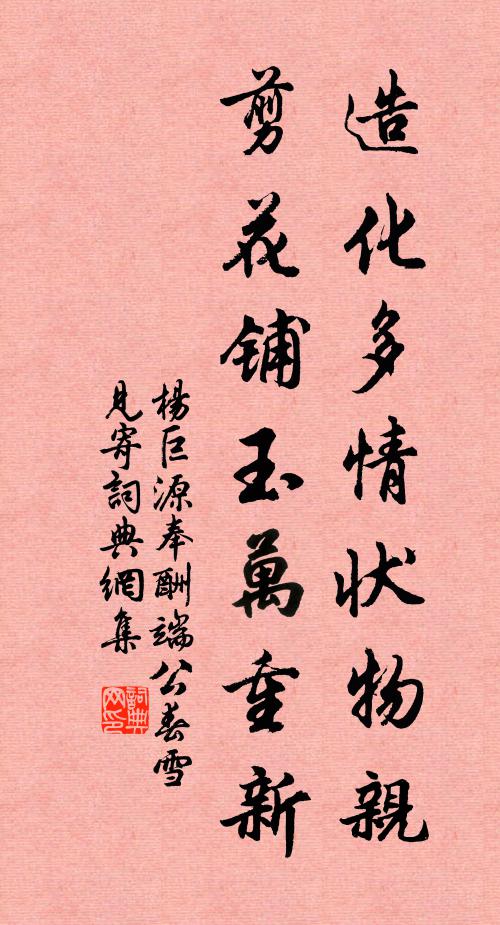 造化多情状物親
剪花铺玉萬重新
楊巨源奉酬端公春雪
見寄詞典網集
詞典
网印